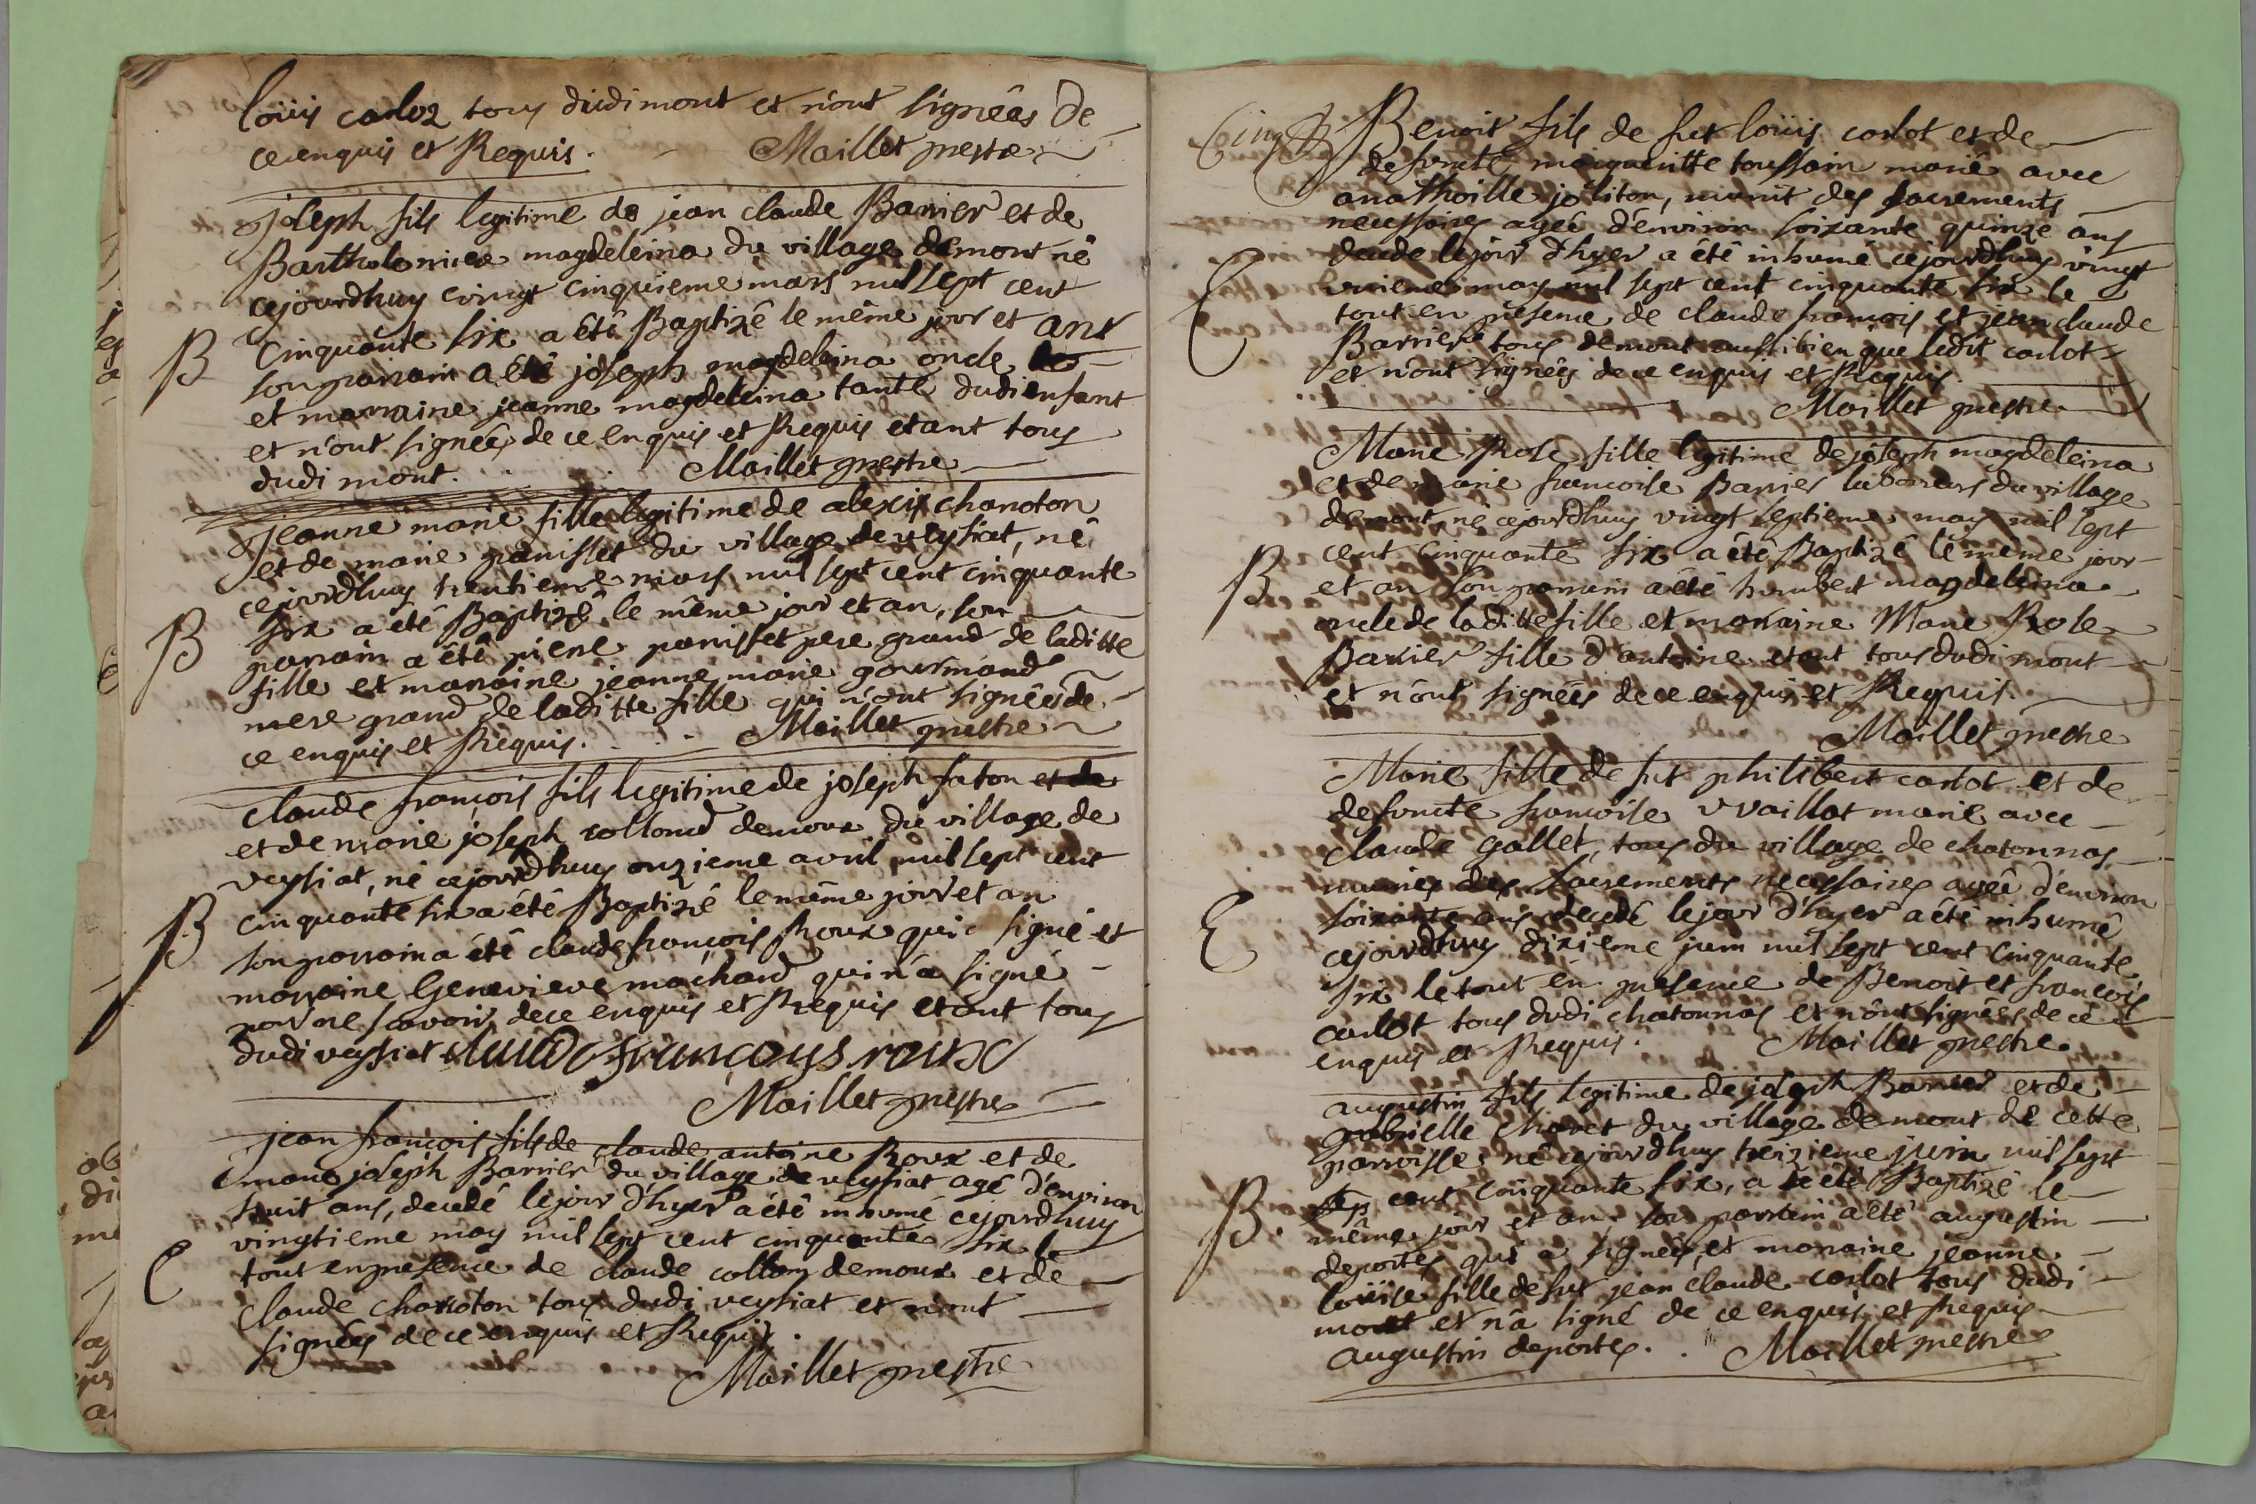 loüis carloz tous dudi mont et n'ont signées de
ce enquis et Requis. Maillet prestre
joseph fils legitime de jean claude Barrier et de
Bartholomiere magdeleina du village de mont né
cejourdhuy vingt cinquieme mars mil sept cent
B
Cinquante six a été Baptizé le même jour et an
son parrain a été joseph magdeleina oncle
et marraine jeanne magdeleina tante dudi enfant
et n'ont signées de ce enquis et Requis etant tous
dudi mont. Maillet prestre
jeanne marie fille legitime de alexis charroton
et de marie panisset du village de veysiat, né
cejourdhuy trentieme mars mil sept cent cinquante
B
six a été Baptizé le même jour et an, son
parrain a été piere panisset pere grand de laditte
fille et marraine jeanne marie gourmand
mere grand de laditte fille qui n'ont signées de
ce enquis et Requis. Maillet prestre
claude françois fils legitime de joseph faton et de
et de marie joseph collond demoux du village de
veysiat, né cejourdhuy onzieme avril mil sept cent
B
cinquante six a été Baptizé le même jour et an
son parrain a été claude françois Roux qui signé et
marraine Genevieve machard qui n'a signé
pour ne savoir, de ce enquis et Requis etant tous
dudi veysiat claude françoys roux
Maillet prestre
jean françois fils de claude antoine Roux et de
marie joseph Barrier du village de veysiat agé d'environ
huit ans, decedé le jour d'hyer a été inhumé cejourdhuy
vingtieme may mil sept cent cinquante six le
E
tout en presence de claude collom demoux et de
claude charroton tous dudi veysiat et n'ont
signées de ce enquis et Requis.
Maillet prestre
Cinq B Benoit fils de fut loüis carlot et de
defuncte margueritte toussain marié avec
anathoille joliton, munit des sacrements
necessaires agée d'environ soixante quinze ans
E
decede le jour d'hyer a été inhumé cejourdhuy vingt
unieme may mil sept cent cinquante six le
tout en presence de claude françois et jean claude
Barrier tous de mont aussi bien que ledit carlot
et n'ont signées de ce enquis et Requis.
Maillet prestre
Marie Rose fille legitime de joseph magdeleina
et de marie francoise Barrier laboureurs du village
de mont, né cejourdhuy vingt septieme may mil sept
B
cent cinquante six a été Baptizé le même jour
et an son parrain a été humbert magdeleina
oncle de laditte fille et marraine Marie Rose
Barrier fille d'antoine etant tous dudi mont
et n'ont signées de ce enquis et Requis.
Maillet prestre
Marie fille de fut philibert carlot et de
defuncte francoise vvaillat marié avec
claude gallet, tous du village de chatonnas
munies des sacrements necessaires agée d'environ
E
soixante ans decedé le jour d'hyer a été inhumé
cejourdhuy dixieme juin mil sept cent cinquante
six le tout en presence de Benoit et françois
carlot tous dudi chatonnas et n'ont signées de ce
enquis et Requis. Maillet prestre.
augustin fils legitime de joseph Barrier et de
gabrielle charet du village de mont de cette
parroisse né cejourdhuy treizieme juin mil sept
B.
cent cinquante six, a été Baptizé le
même jour et an. son parrain a été augustin
deportes qui a signée, et marraine jeanne
loüise fille de fut jean claude carlot tous dudi
mont et n'a signé de ce enquis et Requis
augustin deportes. Maillet prestre